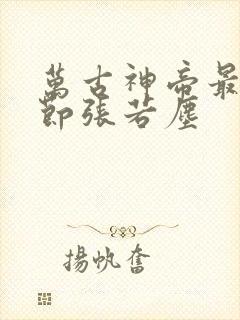 萬古神帝最
節張若塵
揚帆奮